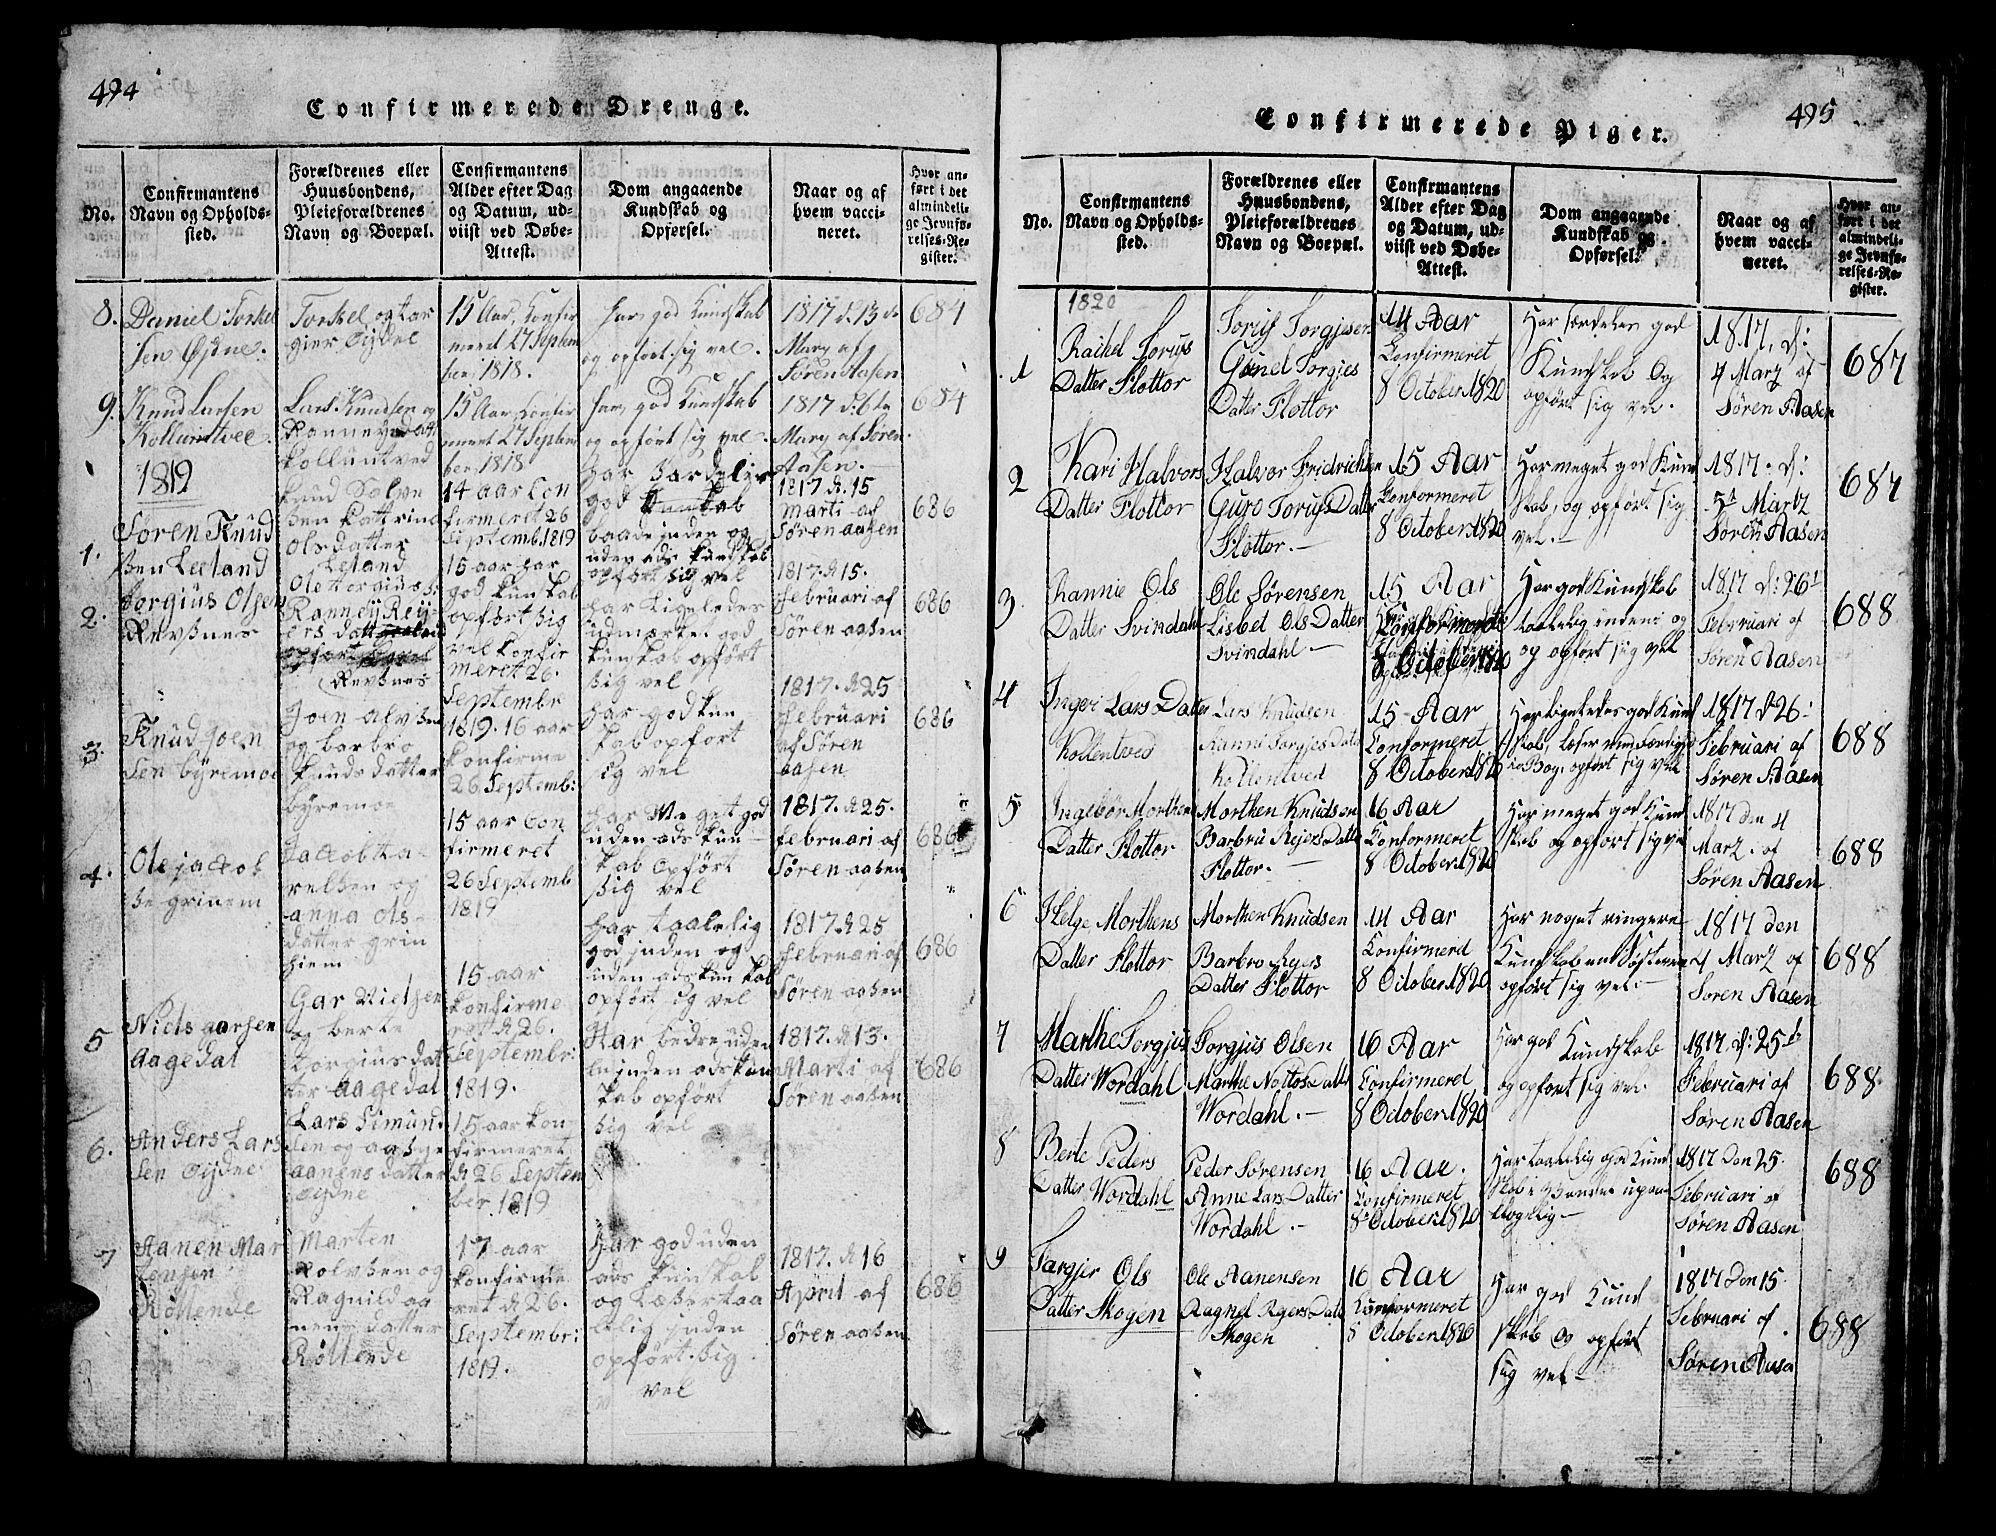 494
Confirmerede Drenge.
No.
Confirmantens
Navn og Opholds-
sted.
Forældrenes eller
Huusbondens,
Pleieforældrenes
Navn og Boepæl.
Confirmantens
Alder efter Dag
og Datum, ud-
viist ved Døbe-
Attest.
Dom angaaende
Kundskab og
Opførsel.
Naar og af
hvem vacci-
neret.
Hvor an-
ført i det
almindeli-
ge Jevnfø-
relses-Re-
gister.
8.
Daniel Torkel
sen Øjdne.
Torkel og tar
gier Øjdel
15 Aar, Confir
meret 27 Septem
ber, 1818.
har, god Kundskab
og opført sig vel.
1817 d. 13 de
Marz af
Søren Aasen
684
9.
Knud Larsen
Kolluntvee.
Lars Knudsen og
Kolluntved
15 Aar, Confir
meret 27 Septem
ber, 1818
har, god Kundskab
og opført sig vel.
1817 d. 6 te
Marz af Søren
Aasen.
684
1819
1.
Søren Knud
sen Leeland
Knud Salve
sen Kattrine
Olsdatter
Leland
14 aar Con
firmeret 26
Septemb. 1819
har særdelis
god kunskab
baade inden og
uden ads kundskab
opført sig vel
1817. d. 15
Marti af
Søren aasen
686
2.
Torgius Olsen
Revsnes
Ole torgiuss:
Rannei Reij
ers datt
Revsnes
15 aar har
god kunskab
opført sig
vel konfir
meret 26.
Septembr
1819.
har ligeledes
udmærket god
kunskab opført
sig vel
1817. d. 15.
februari af
Søren aasen
686
3.
Knud joen
sen byremoe
Joen alvsen
og barbro
knuds datter
byremoe
16 aar
konfirme
26 Septemb:
har god kun
skab opført
sig vel
1817. d. 25
februari
af Søren
aasen
686
4.
Ole jacob
se grinem
Jacob ka-
relsen og
anna ols-
datter grin
hiem
15 aar Con
firmeret
26 Septemb
1819
har Meget god
uden ads kun
skab opført
sig vel
1817. d. 25.
februari af
Søren aasen
686
5
Niels garsen
aagedal
Gar Nielsen
og berte
torgius dat
ter aagedal
15 aar
konfirme
ret d. 26.
Septembr:
1819.
har taalelig
god jnden og
uden ads kunskab
opført sig vel
1817. d. 25
februari af
Søren aasen
686
6.
Anders Lars
sen Øijdne
Lars Simund
sen og aasne
aanens datter
Øijdne
15 aar kon
firmeret
d. 26 Septem
ber. 1819
Har bedre uden
en jnden ads kun
skab opført
sig vel
1817. d. 13.
Marti af
Søren aasen
686
7
Aanen Mar
tensen
Røllende
Marten
Rolvsen og
Ragnild aa
nens datter
Røllende
17 aar
konfirme
ret d. 26.
Septembr:
1819.
har god uden
ads kunskab
og Læser taa
lelig jnden
opført sig
vel
1817. d. 16
April af
Søren aasen
686
495
Confirmerede Piger.
No.
Confirmantens
Navn og Opholds-
sted.
Forældrenes eller
Huusbondens,
Pleieforældrenes
Navn og Boepæl.
Confirmantens
Alder efter Dag
og Datum, ud-
viist ved Døbe-
Attest.
Dom angaaende
Kundskab og
Opførsel.
Naar og af
hvem vacci-
neret.
Hvor an-
ført i det
almindeli-
ge Jevnfø-
relses-Re-
gister.
1820
1
Rachel Torius
Datter Flottor
Torius Torgjusen
Gunel Torgies
Datter Flottor
14 Aar
Confirmeret
8 October 1820
Har særdeles god
Kundskab Og
opført sig vel.
1817, d:
4 Marz af
Søren Aasen
687
2
Kari Halvors
Datter Flottor
Halvor Fridrichsen
Guro Torius Datter
Flottor.-
15 Aar
Conformeret
8 October 1820
Har meget god Kund
skab, og opført sig
vel.-
1817. d:
5t Martz
Søren Aasen
687
3.
Rannie Ols
Datter Svindahl
Ole Sørensen
Lisbet Ols Datter
Svindahl -
15 Aar
Conformeret
8 October 1820
Har god Kundskab
taalelig inden og
og opført sig vel
1817 d: 26t
Februari af
Søren Aasen
688
4
Ingeri Lars Datter
Kollentved
Lars Knudsen
Ranni Torgjes Datter
Kollentved
15 Aar
Conformeret
8 October 1820
Har ligeledes god Kund
skab, læser med færdighed
i Bog, opført sig vel
1817 d 26:
Februari af
Søren Aasen
688
5
Ingebor Morthens
Datter Flottor
Morthen Knudsen
Barbru Rejers Datter
Flottor.
16 Aar
Conformeret
8 October 1820
Har meget god Kund
skab og opført sig vel
1817 den 4
Marz. af
Søren Aasen
688
6
Helge Morthens
Datter Flottor
Morthen Knudsen
Barbro Rejers
Datter Flottor
14 Aar
Confirmerd
8 October 1820
Har noget ringere
Kundskab en Søsteren
opført sig vel.-
1817 den
4 Marz af
Søren Aasen
688
7
Marthe Torgjus
Datter Wordahl
Torgjus Olsen
Marthe Nottos Datter
Wordahl.-
16 Aar
Confirmerd
8 October 1820
Har god Kundskab
og opført sig vel.
1817, d: 25de
Februari af
Søren Aasen
688.
8
Berte Peders
Datter Wordahl
Peder Sørensen
Anne Lars Datter
Wordahl.-
16 Aar.
Confirmeret
8 October 1820
Har taalelig god Kund
1817 den 25.
Februari af
Søren Aasen
688
9
Targjer Ols
Datter Skogen
Ole Aanensen
Ragnel Rejers Datt
Skogen
16 Aar
Conformeret
8 October 1820
Har god Kund
skab Og opført
sig vel-
1817 den 15.
Februari af
Søren Aasen
688